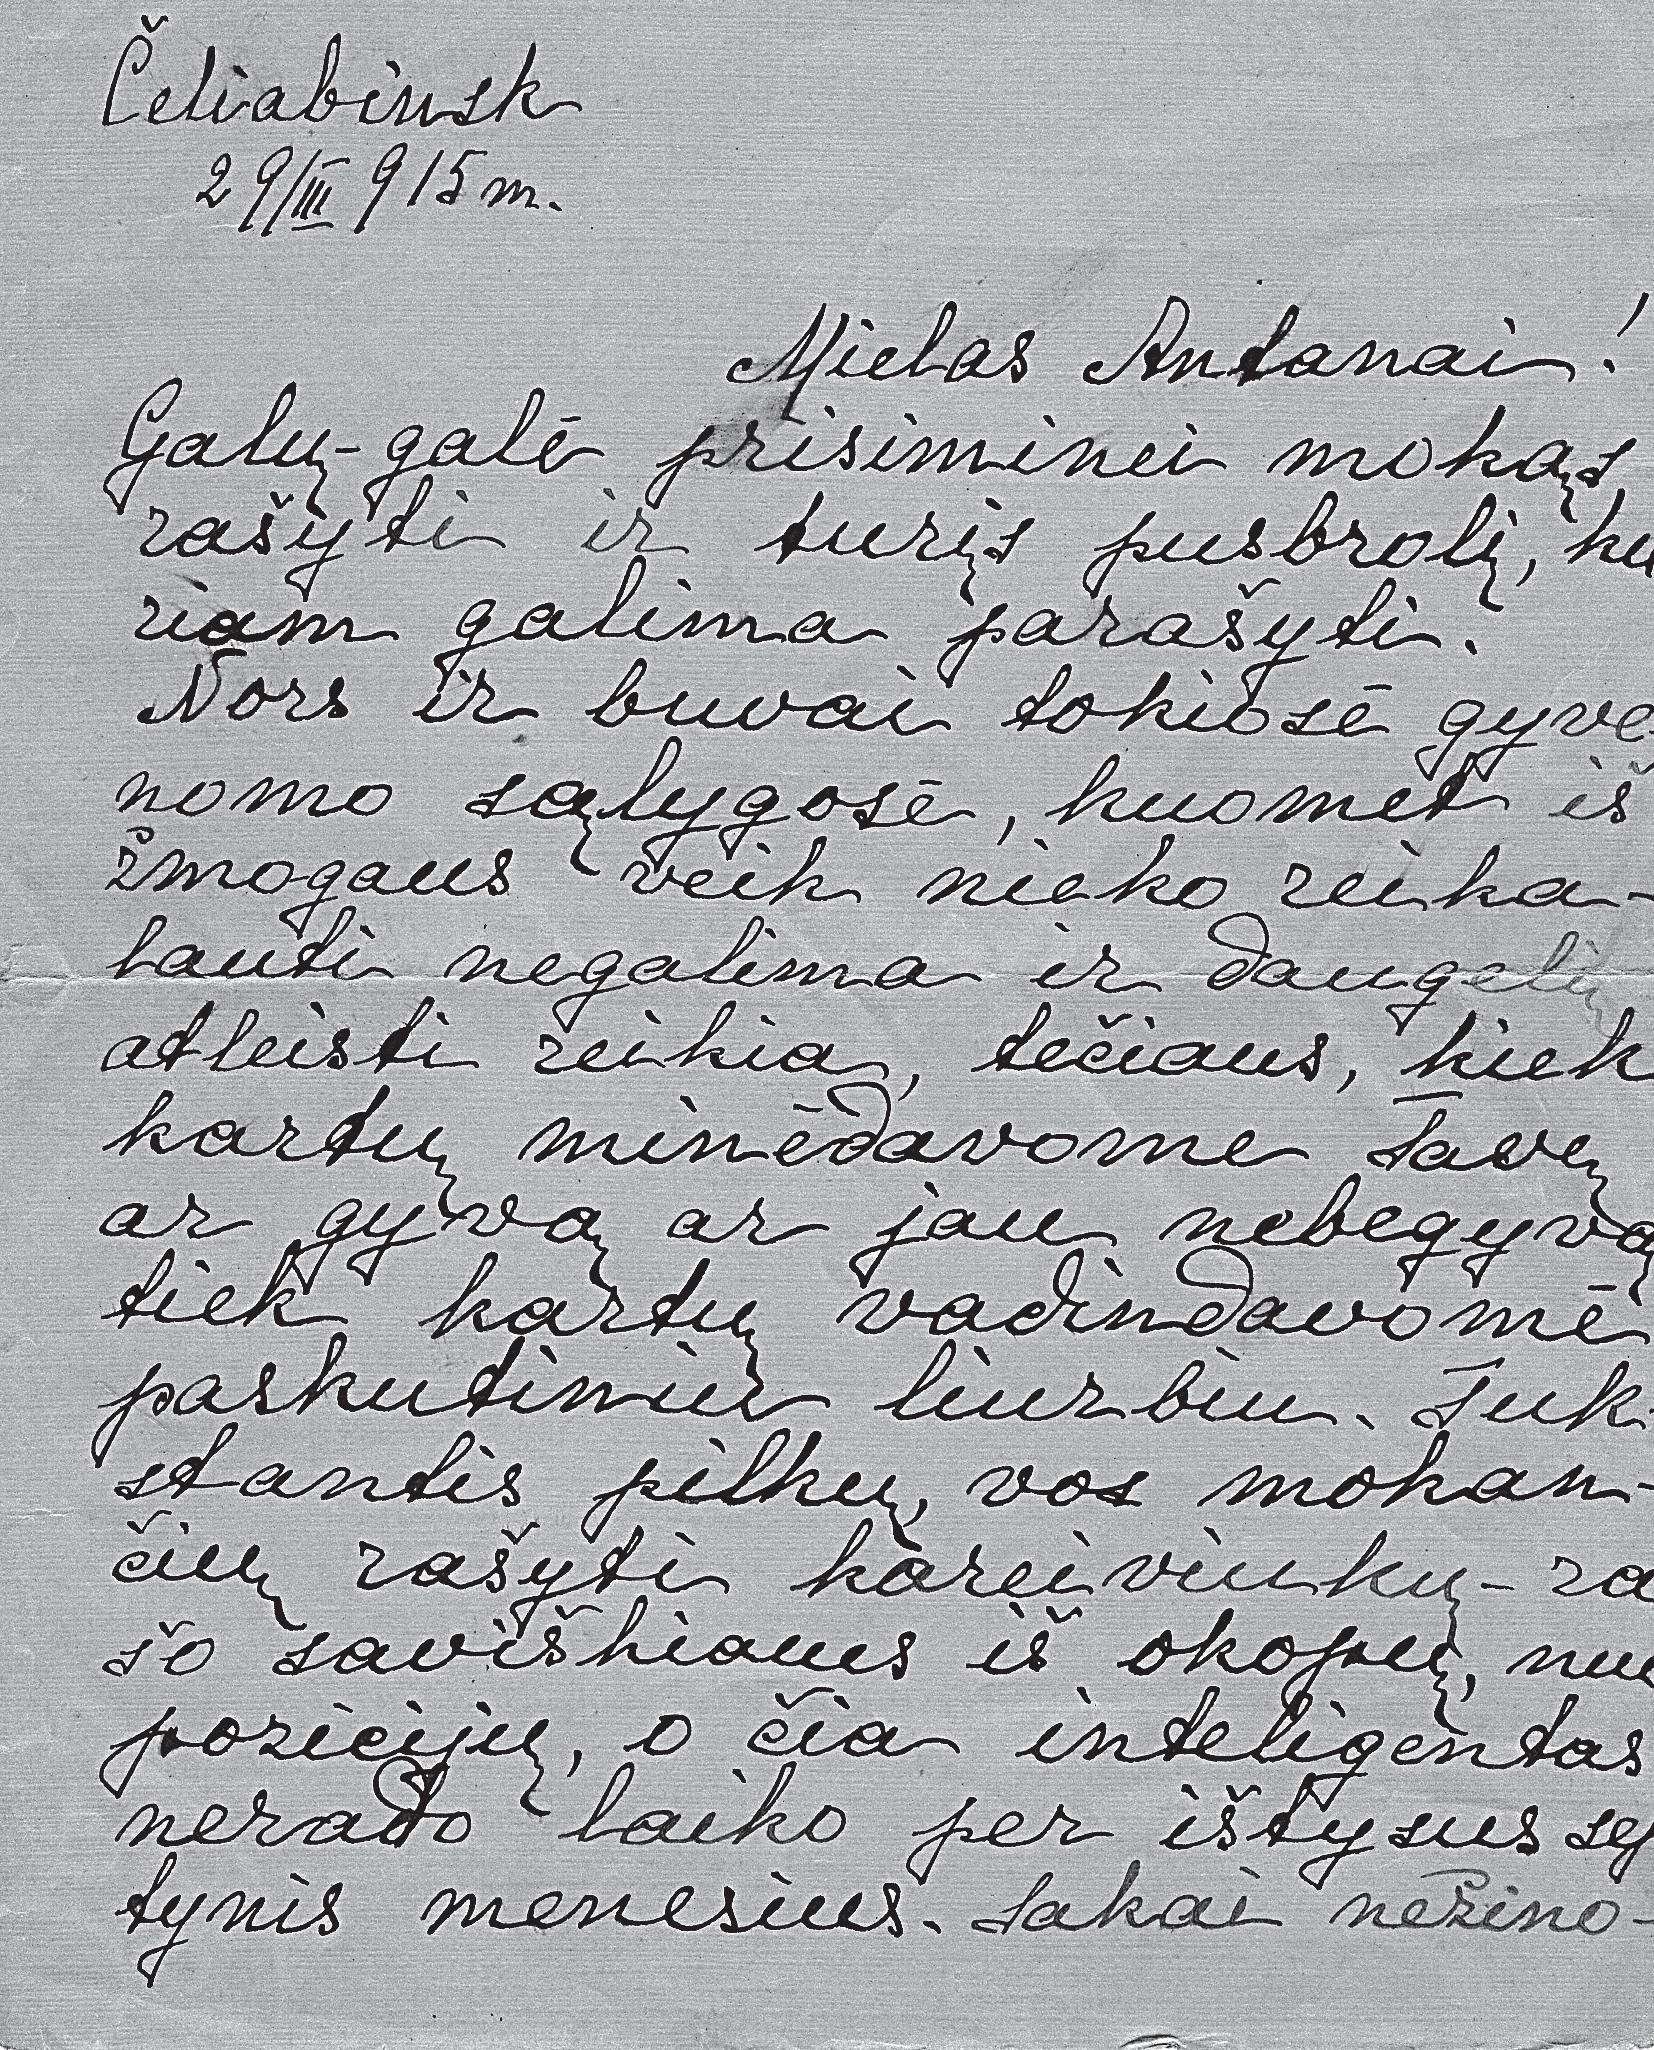 Čeliabinsk
29/III 915 m.
Mielas Antanai!
Galų-galē prisiminei mokąs
rašyti ir turįs pusbrolį, ku
riam galima parašyti.
Nors ir buvai tokiosē gyve-
nomo sąlygosē, kuomet iš
žmogaus veik nieko reika-
lauti negalima ir daugelių
atleisti reikia, tečiaus, kiek
kartų minēdavome Tavę
ar gyvą ar jau nebegyvą
tiek kartų vadindavomē
paskutiniu liurbiu. Tuk-
stantis pilkų, vos mokan-
čių rašyti kareiviukų - ra
šo saviškiaus iš okopų, nuo
pozicijų, o čia inteligentas
nerado laiko per ištysus sep
tynis menesius. Sakai nežino-